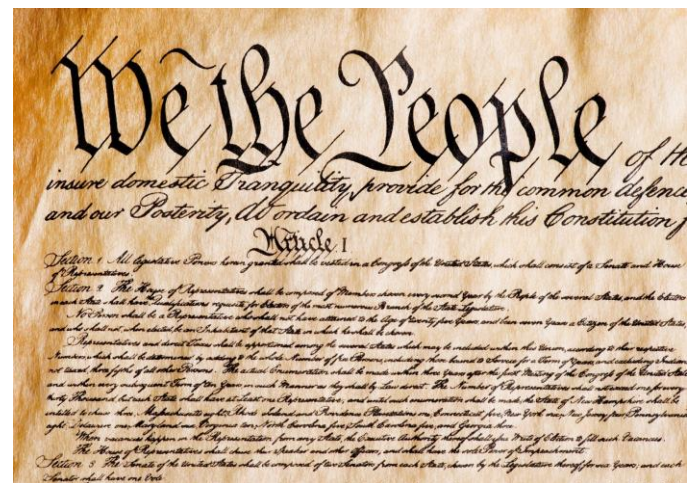 We the People of the
insure domestic Tranquility, provide for the common defence
and our Posterity, do ordain and establish this Constitution f
Article. I
Section. 1 All legislative Powers herein granted shall be vested in a Congress of the United States, which shall consist of a Senate and House
of Representatives
Section. 2 The House of Representatives shall be composed of Members chosen every second Year by the People of the several States, and the Electors
in each State shall have Qualifications requisite for Electors of the most numerous Branch of the State Legislature.
No Person shall be a Representative who shall not have attained to the Age of twenty five Years and been seven Years a Citizen of the United States,
and who shall not, when elected, be an Inhabitant of that State in which he shall be chosen.
Representatives and direct Taxes shall be apportioned among the several States which may be included within this Union, according to their respective
Numbers, which shall be determined by adding to the whole Number of free Persons, including those bound to Service for a Term of Years, and excluding Indians
not taxed, three fifths of all other Persons. The actual Enumeration shall be made within three Years after the first Meeting of the Congress of the United States
and within every subsequent Term of ten Years, in such Manner as they shall by Law direct. The Number of Representatives shall not exceed one for every
thirty Thousand, but each State shall have at Least one Representative; and until such enumeration shall be made, the State of New Hampshire shall be
entitled to chuse three, Massachusetts eight, Rhode Island and Providence Plantations one, Connecticut five, New York six, New Jersey four, Pennsylvania
eight, Delaware one, Maryland six, Virginia ten, North Carolina five, South Carolina five, and Georgia three.
When vacancies happen in the Representation from any State, the Executive Authority thereof shall issue Writs of Election to fill such Vacancies.
The House of Representatives shall chuse their Speaker and other Officers; and shall have the sole Power of Impeachment.
Section. 3 The Senate of the United States shall be composed of two Senators from each State, chosen by the Legislature thereof, for six Years; and each
Senator shall have one Vote